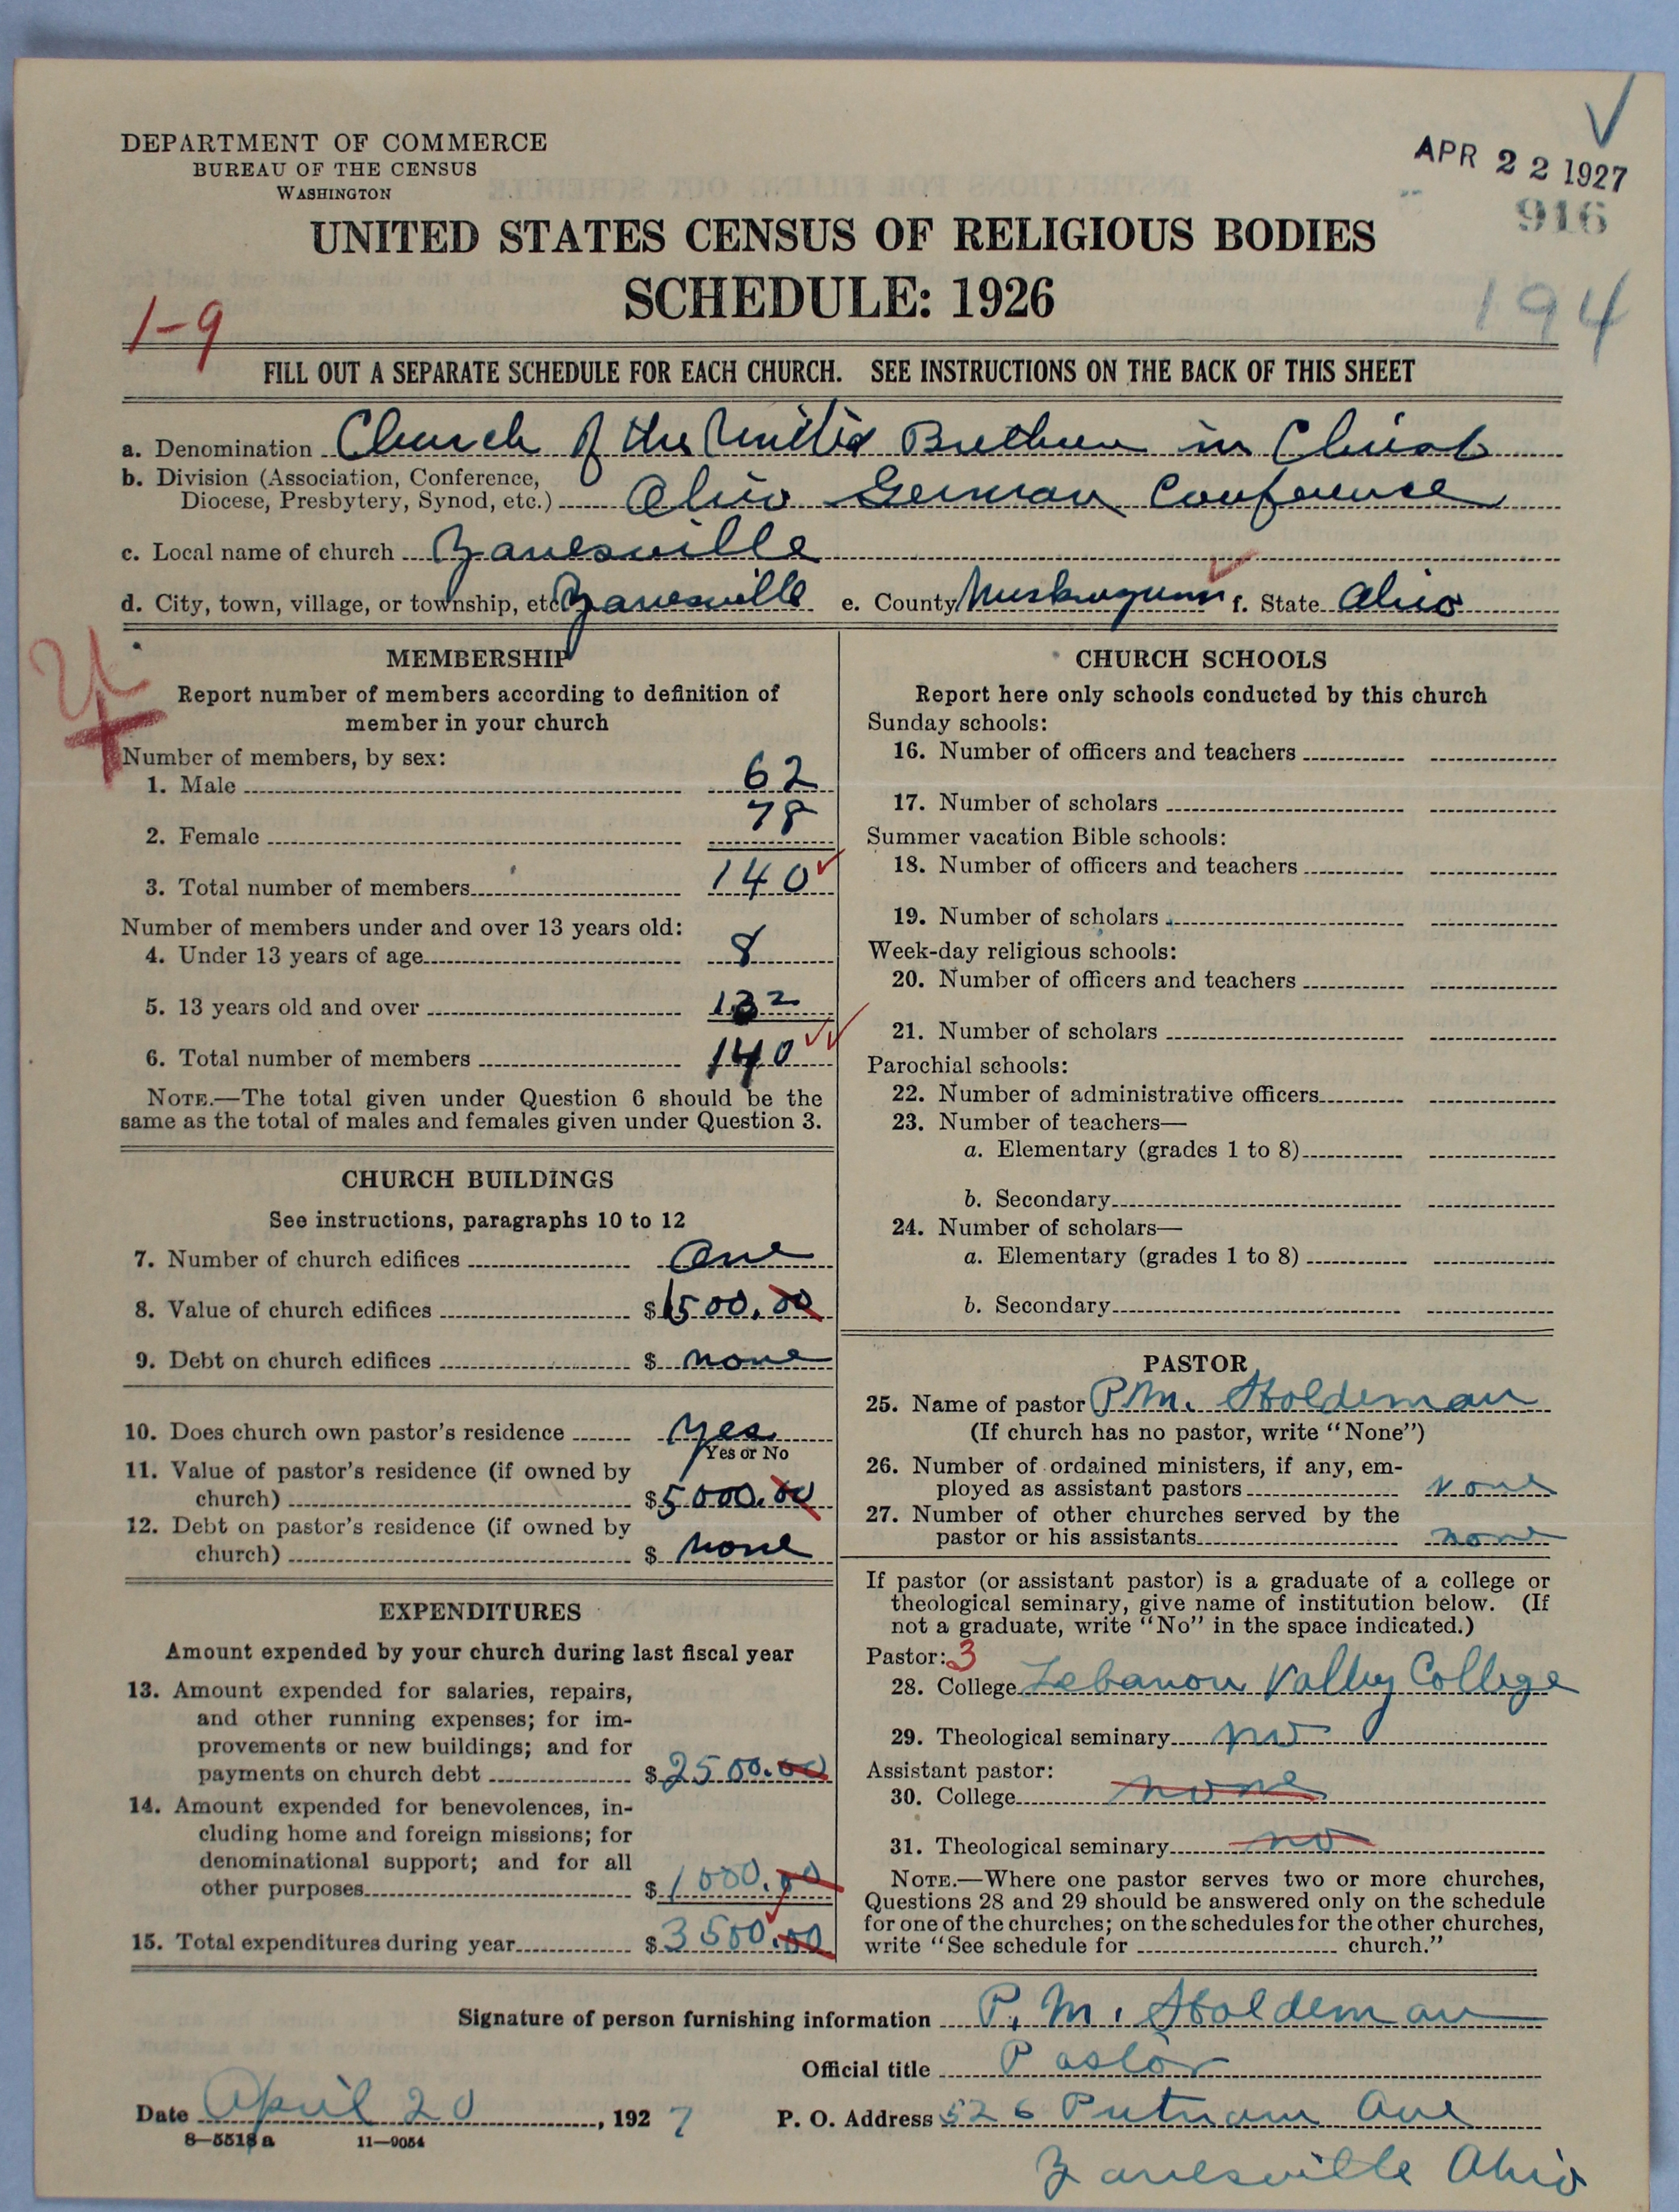 DEPARTMENT OF COMMERCE
BUREAU OF THE CENSUS
WASHINGTON
APR 22 1927
916
194
UNITED STATES CENSUS OF RELIGIOUS BODIES
SCHEDULE: 1926
1-9
FILL OUT A SEPARATE SCHEDULE FOR EACH CHURCH. SEE INSTRUCTIONS ON THE BACK OF THIS SHEET
a. Denomination Church of the United Brethren in Christ
b. Division (Association, Conference,
Diocese, Presbytery, Synod, etc.) Ohio German Conference
c. Local name of church Zanesville
d. City, town, village, or township, etc. Zanesville e. County Muskingum f. State Ohio
MEMBERSHIP
Report number of members according to definition of
member in your church
Number of members, by sex:
1. Male 62
2. Female 78
3. Total number of members 140
Number of members under and over 13 years old:
4. Under 13 years of age 8
5. 13 years old and over 132
6. Total number of members 140
NOTE.—The total given under Question 6 should be the
same as the total of males and females given under Question 3.
CHURCH BUILDINGS
See instructions, paragraphs 10 to 12
7. Number of church edifices One
8. Value of church edifices $1500.00
9. Debt on church edifices $ none
10. Does church own pastor's residence yes
Yes or No
11. Value of pastor's residence (if owned by
church) $5000.00
12. Debt on pastor's residence (if owned by
church) $ none
EXPENDITURES
Amount expended by your church during last fiscal year
13. Amount expended for salaries, repairs,
and other running expenses; for im-
provements or new buildings; and for
payments on church debt $2500.00
14. Amount expended for benevolences, in-
cluding home and foreign missions; for
denominational support; and for all
other purposes $1000.00
15. Total expenditures during year $3500.00
CHURCH SCHOOLS
Report here only schools conducted by this church
Sunday schools:
16. Number of officers and teachers
17. Number of scholars
Summer vacation Bible schools:
18. Number of officers and teachers
19. Number of scholars
Week-day religious schools:
20. Number of officers and teachers
21. Number of scholars
Parochial schools:
22. Number of administrative officers
23. Number of teachers—
a. Elementary (grades 1 to 8)
b. Secondary
24. Number of scholars—
a. Elementary (grades 1 to 8)
b. Secondary
PASTOR
25. Name of pastor P.M. Holdeman
(If church has no pastor, write "None")
26. Number of ordained ministers, if any, em-
ployed as assistant pastors none
27. Number of other churches served by the
pastor or his assistants none
If pastor (or assistant pastor) is a graduate of a college or
theological seminary, give name of institution below. (If
not a graduate, write "No" in the space indicated.)
Pastor: 3
28. College Lebanon Valley College
29. Theological seminary no
Assistant pastor:
30. College none
31. Theological seminary no
NOTE.—Where one pastor serves two or more churches,
Questions 28 and 29 should be answered only on the schedule
for one of the churches; on the schedules for the other churches,
write "See schedule for church."
Signature of person furnishing information P. M. Holdeman
Official title Pastor
Date April 20, 1927 P. O. Address 526 Putnam Ave
8—5518 a 11—9054
Zanesville Ohio